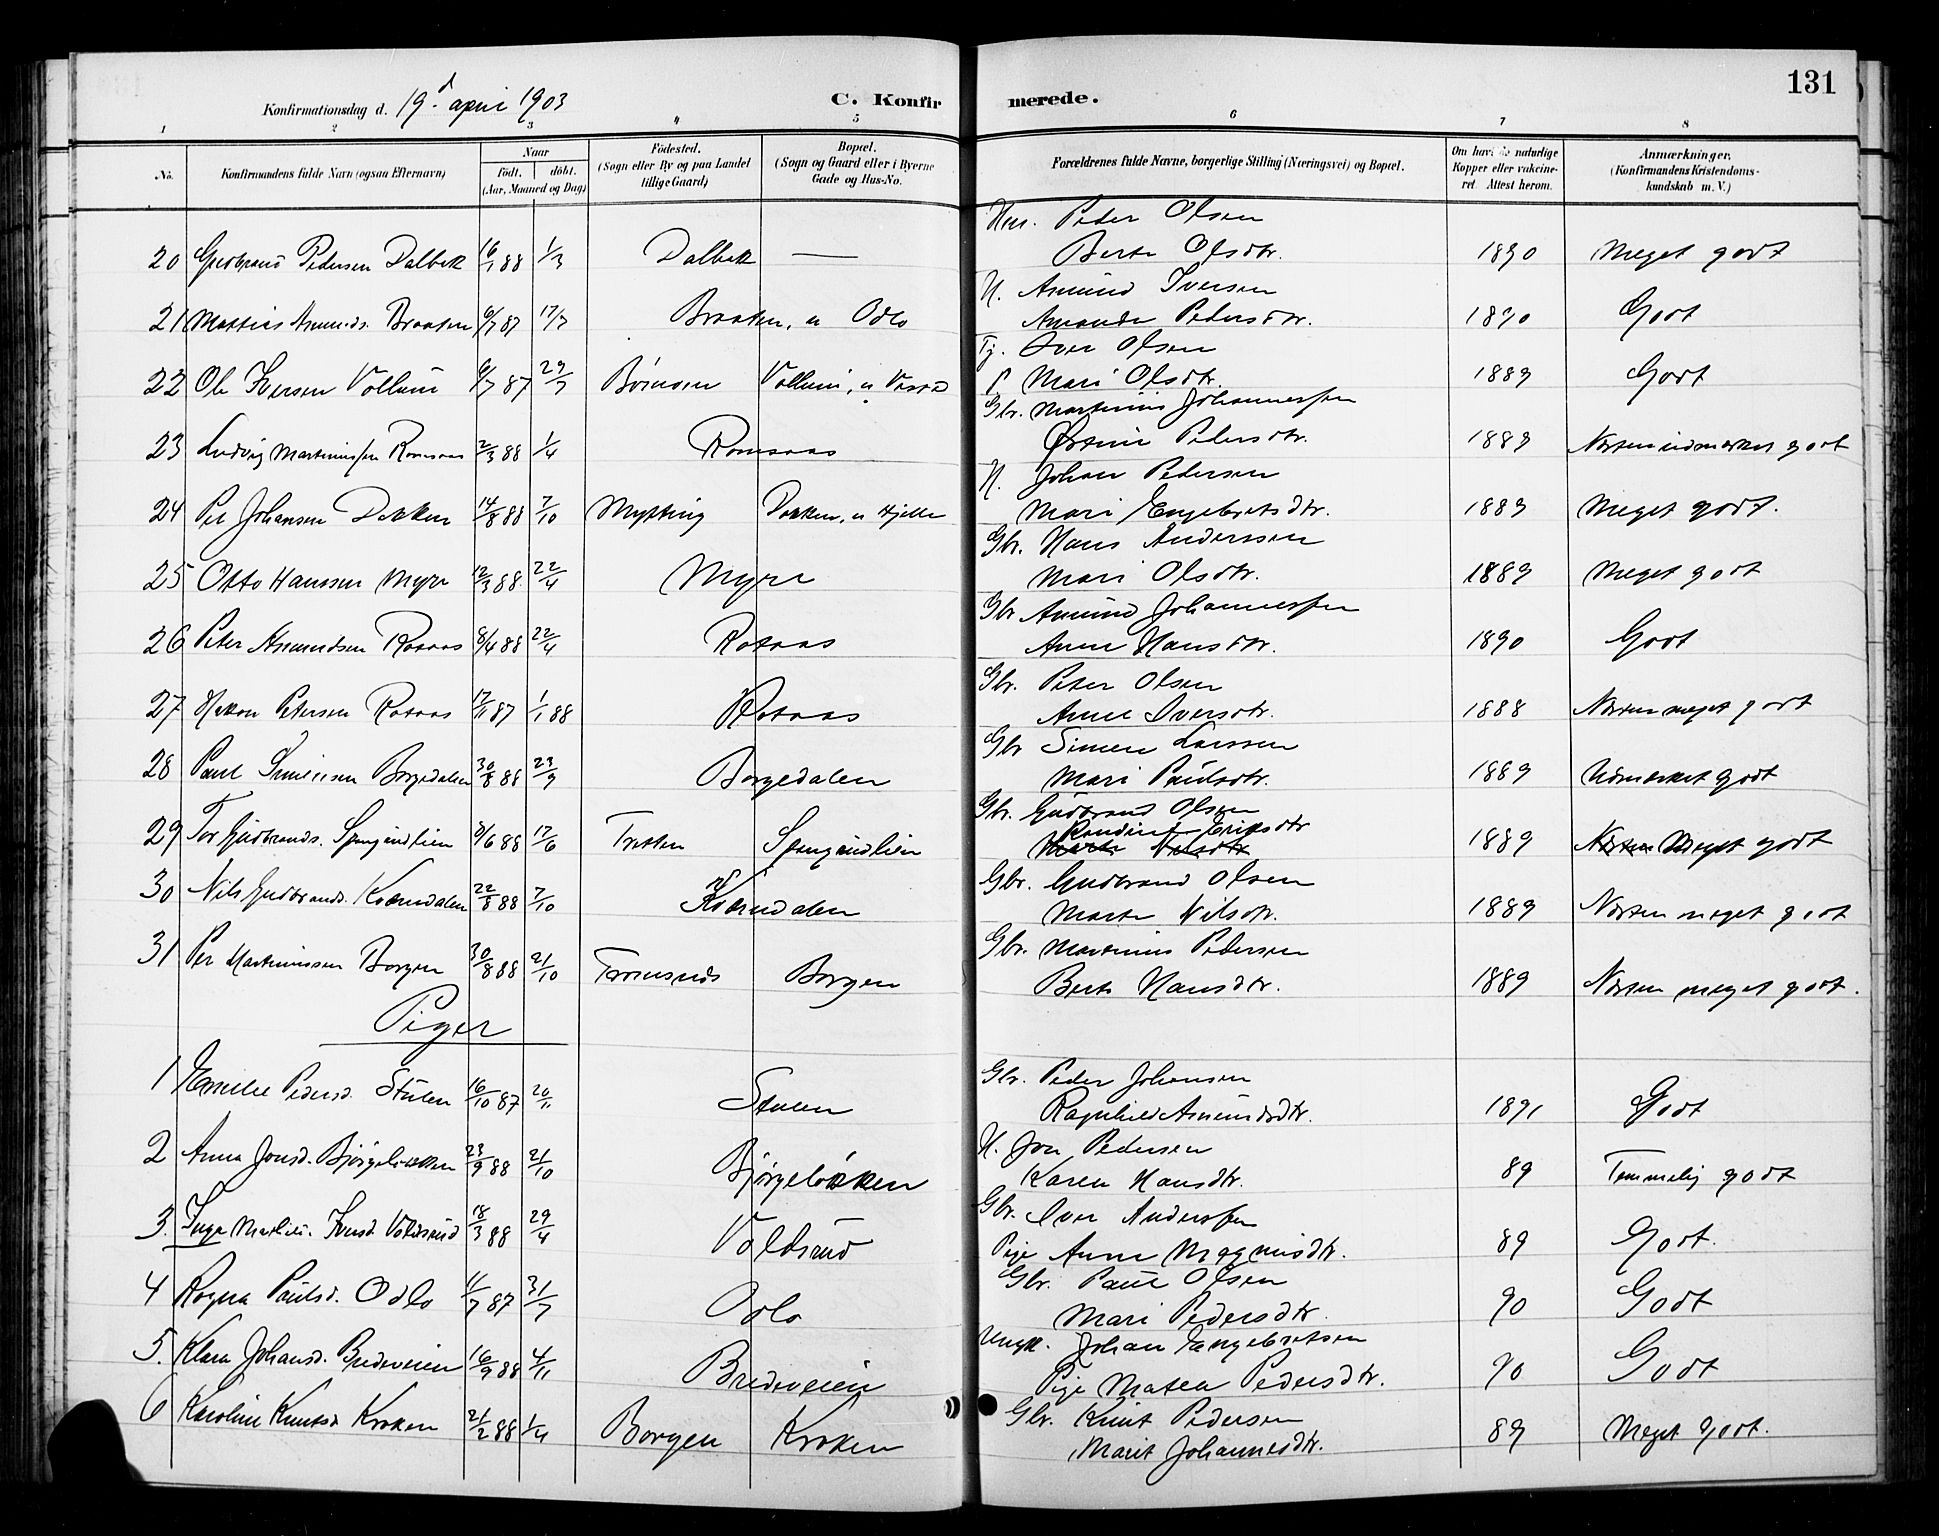 131
Konfirmationsdag d. 19d april 1903 C. Konfirmerede.
1 2 3 4 5 6 7 8
No. Konfirmandens fulde Navn (ogsaa Efternavn) Naar født. døbt. (Aar, Maaned og Dag) Fødested. (Sogn eller By og paa Landet tillige Gaard) Bopæl. (Sogn og Gaard eller i Byerne Gade og Hus-No.) Forældrenes fulde Navne, borgerlige Stilling (Næringsvei) og Bopæl. Om havt de naturlige Kopper eller vakcineret. Attest herom. Anmærkninger. (Konfirmandens Kristendomskundskab m. V.)
Hus. Peder Olsen
20 Gudbrand Pedersen Dalbek 16/1 88 1/3 Dalbek — Berte Olsdtr. 1890 Meget godt
H. Amund Iversen
21 Mattias Amunds. Braaten 6/7 87 17/7 Braaten, u Odlo Amanda Pedersdtr. 1890 Godt
Tj. Iver Olsen
22 Ole Iversen Vollum 6/7 87 29/7 Vollum, u P Mari Olsdtr. 1889 Godt
Gbr. Martinius Johannessen
23 Ludvig Martinissen Romsaas 2/3 88 1/4 Romsaas Pedersdtr. 1889 Næsten udmærket godt
H. Johan Pedersen
24 Per Johansen Dokken 14/8 88 7/10 Mytting Dokken, u Hjelle Mari Engebretsdtr. 1889 Meget godt.
Gbr. Hans Anderssen
25 Otto Hanssen Myre 12/3 88 22/4 Myre Mari Olsdtr. 1889 Meget godt
Gbr Amund Johannessen
26 Peter Amundsen Rosaas 8/4 88 22/4 Rosaas Anne Hansdtr. 1890 Godt
Gbr. Peter Olsen
27 Hakon Petersen Rosaas 17/11 87 1/1 88 Rosaas Anne Iversdtr. 1888 Næsten meget godt
Gbr Simen Larssen
28 Paul Simensen Borgedalen 30/8 88 23/9 Borgedalen Mari Paulsdtr. 1889 Udmærket godt
Gbr. Gudbrand Olsen
Eriksdtr
29 Tor Gudbrands. 3/6 88 17/6 Tretten Marte Nilsdtr 1889 Næsten Meget godt
Gbr. Gudbrand Olsen
30 Nils Gudbrands. Kværndalen 22/8 88 7/10 Kværndalen Marte Nilsdtr. 1889 Næsten meget godt
Gbr. Martinius Pedersen
31 Per Martinissen Borgen 30/8 88 21/10 Borgen Berte Hansdtr. 1889 Næsten meget godt.
Piger
Gbr. Peder Johansen
1 Emelie Pedersd. Stulen 16/10 87 20/11 Stulen Ragnhild Amundsdtr. 1891 Godt
H. Jon Pedersen
2 Anna Jonsd. Bjørgeløkken 23/9 88 21/10 Bjørgeløkken Karen Hansdtr. 89 Temmelig godt
Gbr. Iver Anderssen
3. Inga Mathil. Iversd. Voldsrud 18/3 88 29/4 Voldsrud Pige Anne Magnusdtr. 89 Godt.
Gbr. Paul Olsen
4 Ragna Paulsd. Odlo 11/7 87 31/7 Odlo Mari Pedersdtr. 90 Godt
Ungk. Johan Engebretsen
5. Klara Johansd. Bredeveien 16/9 88 4/11 Bredeveien Pige Matea Pedersdtr. 90 Godt
Gbr. Knut Pedersen
6 Karoline Knutsd Kroken 21/2 88 1/4 Borgen Kroken Marit Johannesdtr. 89 Meget godt.